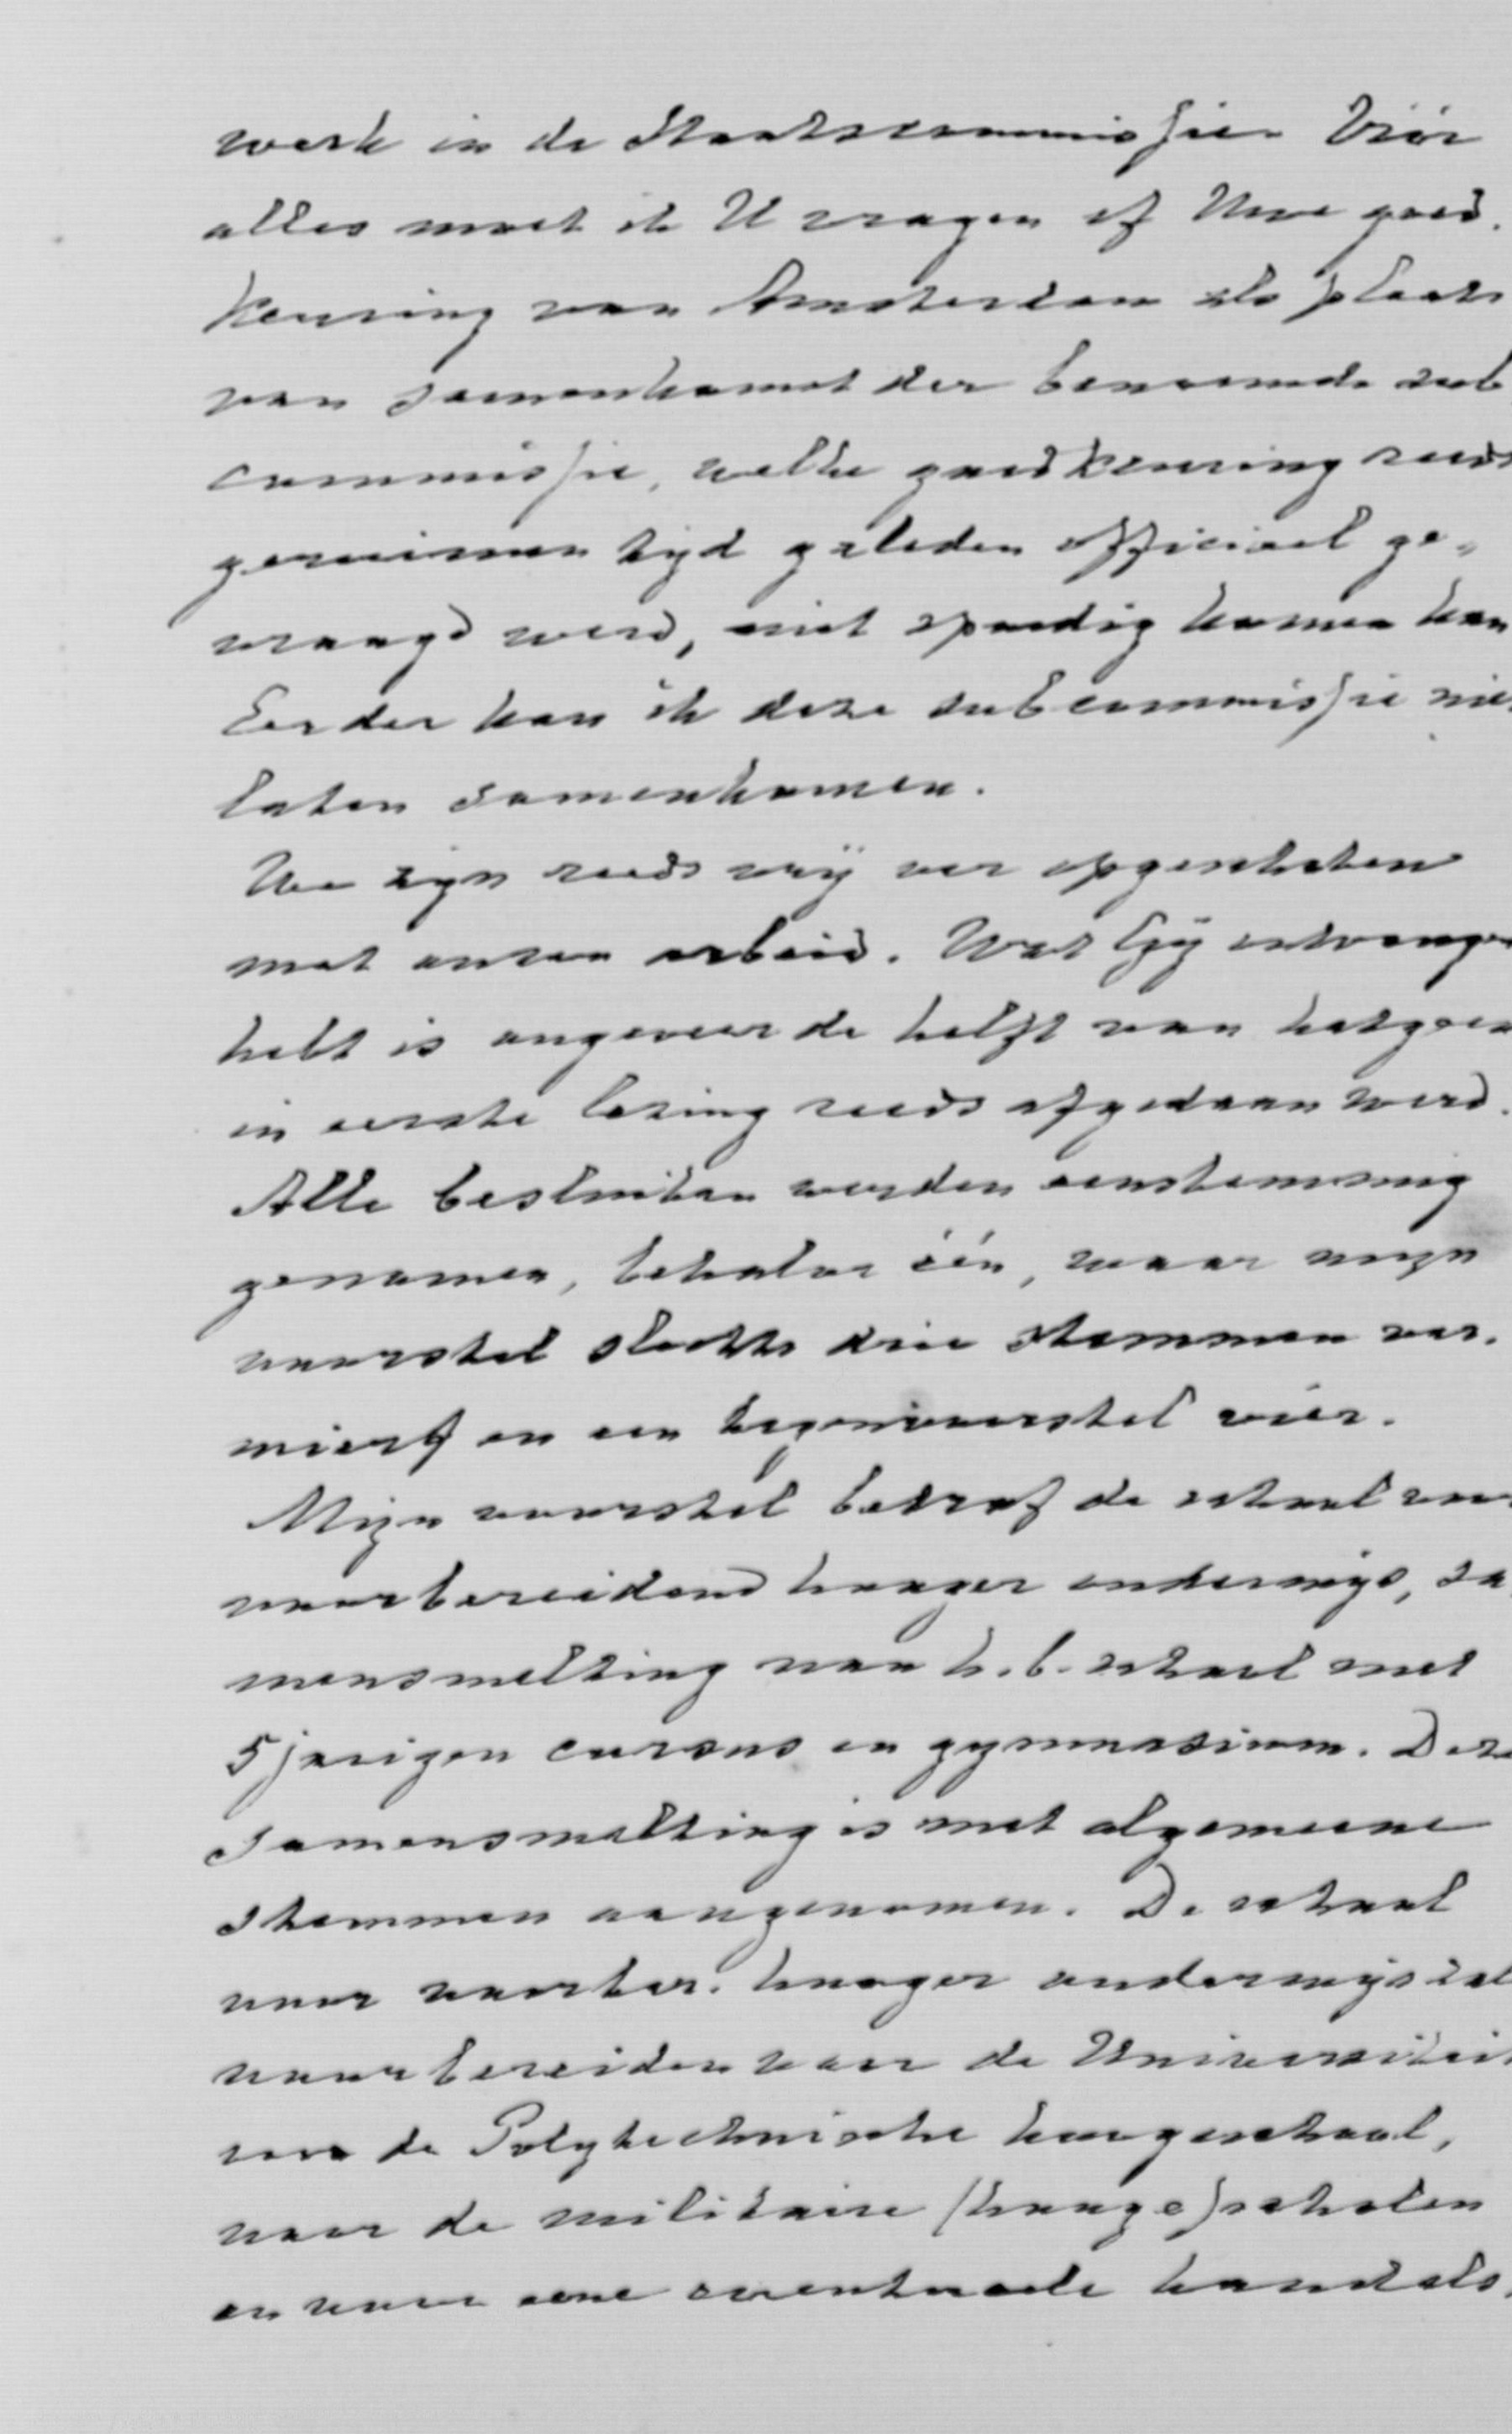 werk in de Staatscommissie. Vóór
alles moet ik U vragen of Uwe goed-
keuring van Amsterdam als plaats
van samenkomst der benoemde sub
commissie, welke goedkeuring reeds
geruimen tijd geleden officieel ge-
vraagd werd, niet spoedig komen kan
Eerder kan ik deze subcommissie nie
laten samenkomen.
We zijn reeds vrij ver opgeschoten
met onzen arbeid. Wat Gij ontvangen
hebt is ongeveer de helft van hetgeen
in eerste lezing reeds afgedaan werd.
Alle besluiten werden eenstemmig
genomen, behalve één, waar mijn
voorstel slechts drie stemmen ver-
wierf en een tegenvoorstel vier.
Mijn voorstel betrof de school voor
voorbereidend hooger onderwijs, sa
mensmelting van h.b. school met
5 jarigen cursus en gymnasium. Deze
samensmelting is met algemeene
stemmen aangenomen. De school
voor voorber. hooger onderwijs zal
voorbereiden voor de Universiteit
voor de Polytechnische hoogeschool,
voor de militaire (hooge)scholen
en voor eene eventueele handels-